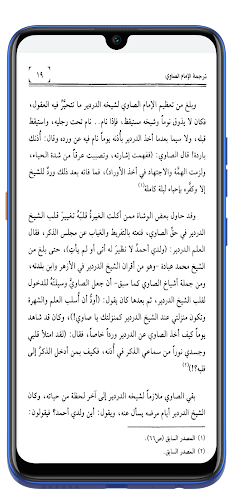 ترجمة الإمام الصاوي
١٩
وبلغ من تعظيم الإمام الصاوي لشيخه الدردير ما تتحيَّرُ فيه العقول،
فكان لا يذوق نوماً وشيخه مستيقظ، فإذا نام.. نام تحت رجليه، واستيقظ
قبله، ولا سيما بعدما أخذ الدردير بأُذنه يوماً نام فيه عن ورده وقال: أُذنك
باردة! قال الصاوي: (ففهمت إشارته، وتصببت عرقاً من شدة الحياء،
ولزمت الهمَّة والاجتهاد في أخذ الأوراد)، فما فاته بعد ذلك وردٌ للشيخ
إلا وكفَّره بإحياء ليلة كاملة(١)
وقد حاول بعض الوشاة ممن أكلت الغيرةُ قلبَهُ تغييرَ قلب الشيخ
الدردير في حقِّ الصاوي، فنعته بالتفريط والغياب عن مجلس الذكر، فقال
العلم الدردير: (ولدي أحمدُ لا نظيرَ له أتى أو لم يأتِ)، حتى بلغ من
الشيخ محمد عبادة -وهو من أقران الشيخ الدردير في الأزهر وابن بلدته،
ومن جملة أشياع الصاوي كما سبق- أن جعل الصاويَّ وسيلتَهُ للدخول
لقلب الشيخ الدردير، ثم بعدها كان يقول: (أودُّ أن أُسلب العلم والشهرة
وتكون منزلتي عند الشيخ الدردير كمنزلتك يا صاوي!)، وكان قد شاهد
يوماً كيف أخذ الصاوي عن الدردير ورداً خاصاً، فقال: (لقد امتلأ قلبي
وجسدي نوراً من سماعي الذكر في أُذنه، فكيف بمن أدخل الذكرُ إلى
قلبه؟!)(٢)
بقي الصاوي ملازماً لشيخه الدردير إلى آخر لحظة من حياته، وكان
الشيخ الدردير أيام مرضه يسأل عنه، ويقول: أين ولدي أحمد؟ فيقولون:
(١) المصدر السابق (ص٦٦).
(٢) المصدر السابق.